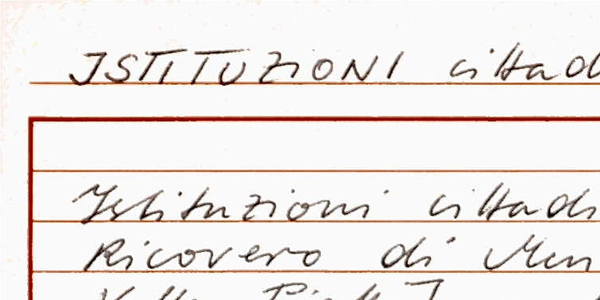 ISTITUZIONI cittad
Istituzioni cittadi
Ricovero di Men